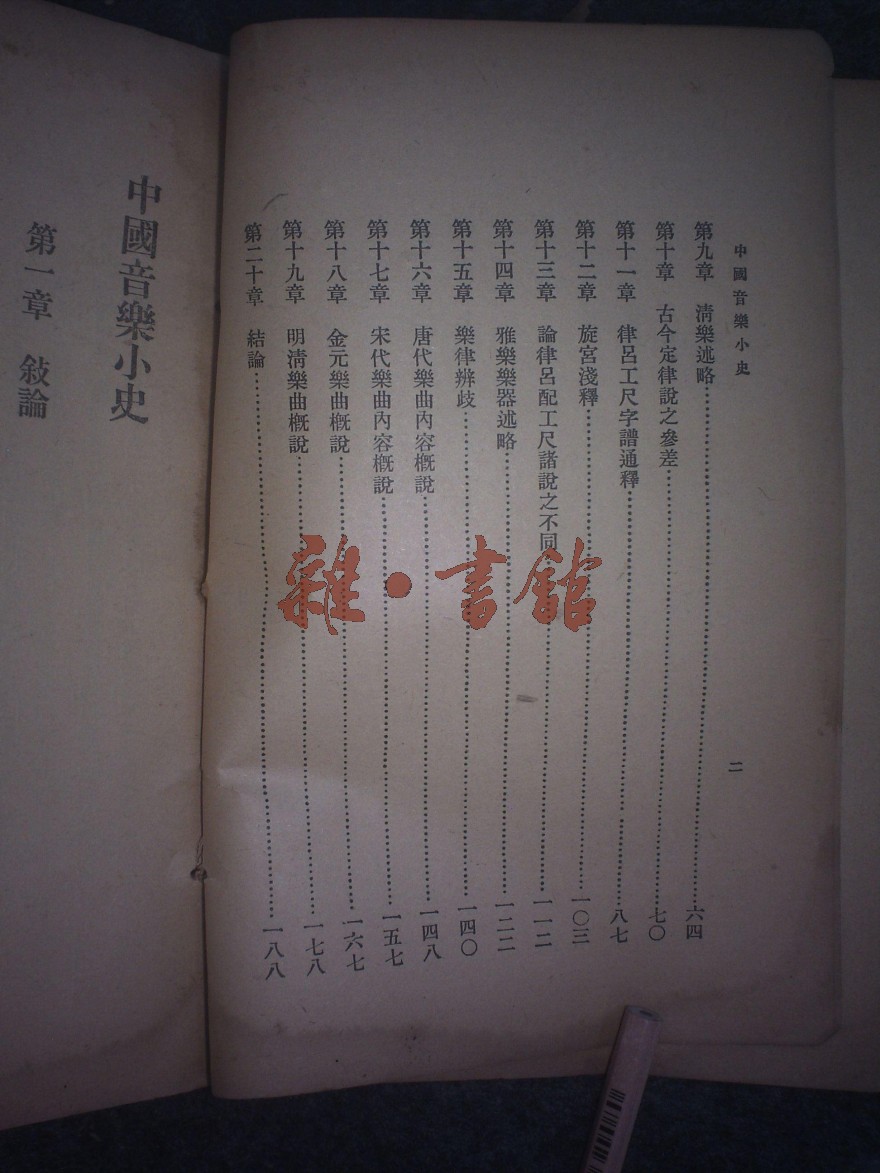 中國音樂小史
二
第九章 清樂述略……六四
第十章 古今定律說之參差……七〇
第十一章 律呂工尺字譜通釋……八七
第十二章 旋宮淺釋……一〇三
第十三章 論律呂配工尺諸說之不同……一一二
第十四章 雅樂樂器述略……一二二
第十五章 樂律辨歧……一四〇
第十六章 唐代樂曲內容概說……一四八
第十七章 宋代樂曲內容概說……一五七
第十八章 金元樂曲概說……一六七
第十九章 明清樂曲概說……一七八
第二十章 結論……一八八
中國音樂小史
第一章 敍論
雜·書館